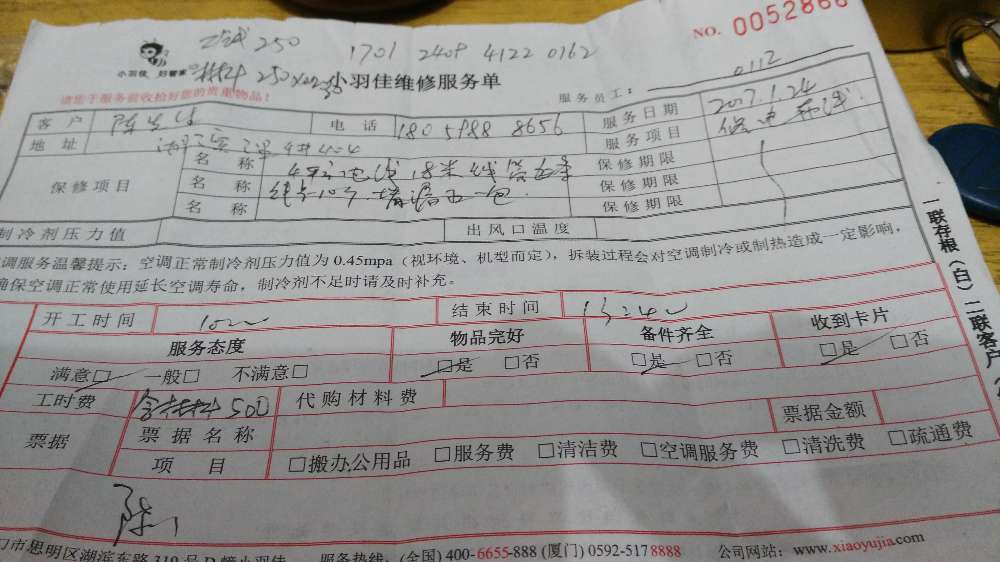 NO. 0052866
250 1701 2409 4122 0162
小羽佳 好管家 材料 250 小羽佳维修服务单
请您于服务前收拾好您的贵重物品!
服务员工: 0112
客户 陈先生 电话 180 5988 8656 服务日期 2017.1.24
地址 服务项目
保修项目 名称 4平方电线 18米 线管五条 保修期限
名称 堵漏王一包 保修期限
名称 保修期限
制冷剂压力值 出风口温度
调服务温馨提示:空调正常制冷剂压力值为 0.45mpa(视环境、机型而定),拆装过程会对空调制冷或制热造成一定影响,
确保空调正常使用延长空调寿命,制冷剂不足时请及时补充。
开工时间 结束时间
服务态度 物品完好 备件齐全 收到卡片
满意□ 一般□ 不满意□ □是 □否 □是 □否 □是 □否
工时费 含材料500 代购材料费
票据 票据名称 票据金额
项目 □搬办公用品 □服务费 □清洁费 □空调服务费 □清洗费 □疏通费
陈
门市思明区湖滨东路319号D幢小羽佳 服务热线:(全国) 400-6655-888 (厦门) 0592-5178888 公司网站:www.xiaoyujia.com
一联存根(白) 二联客户(